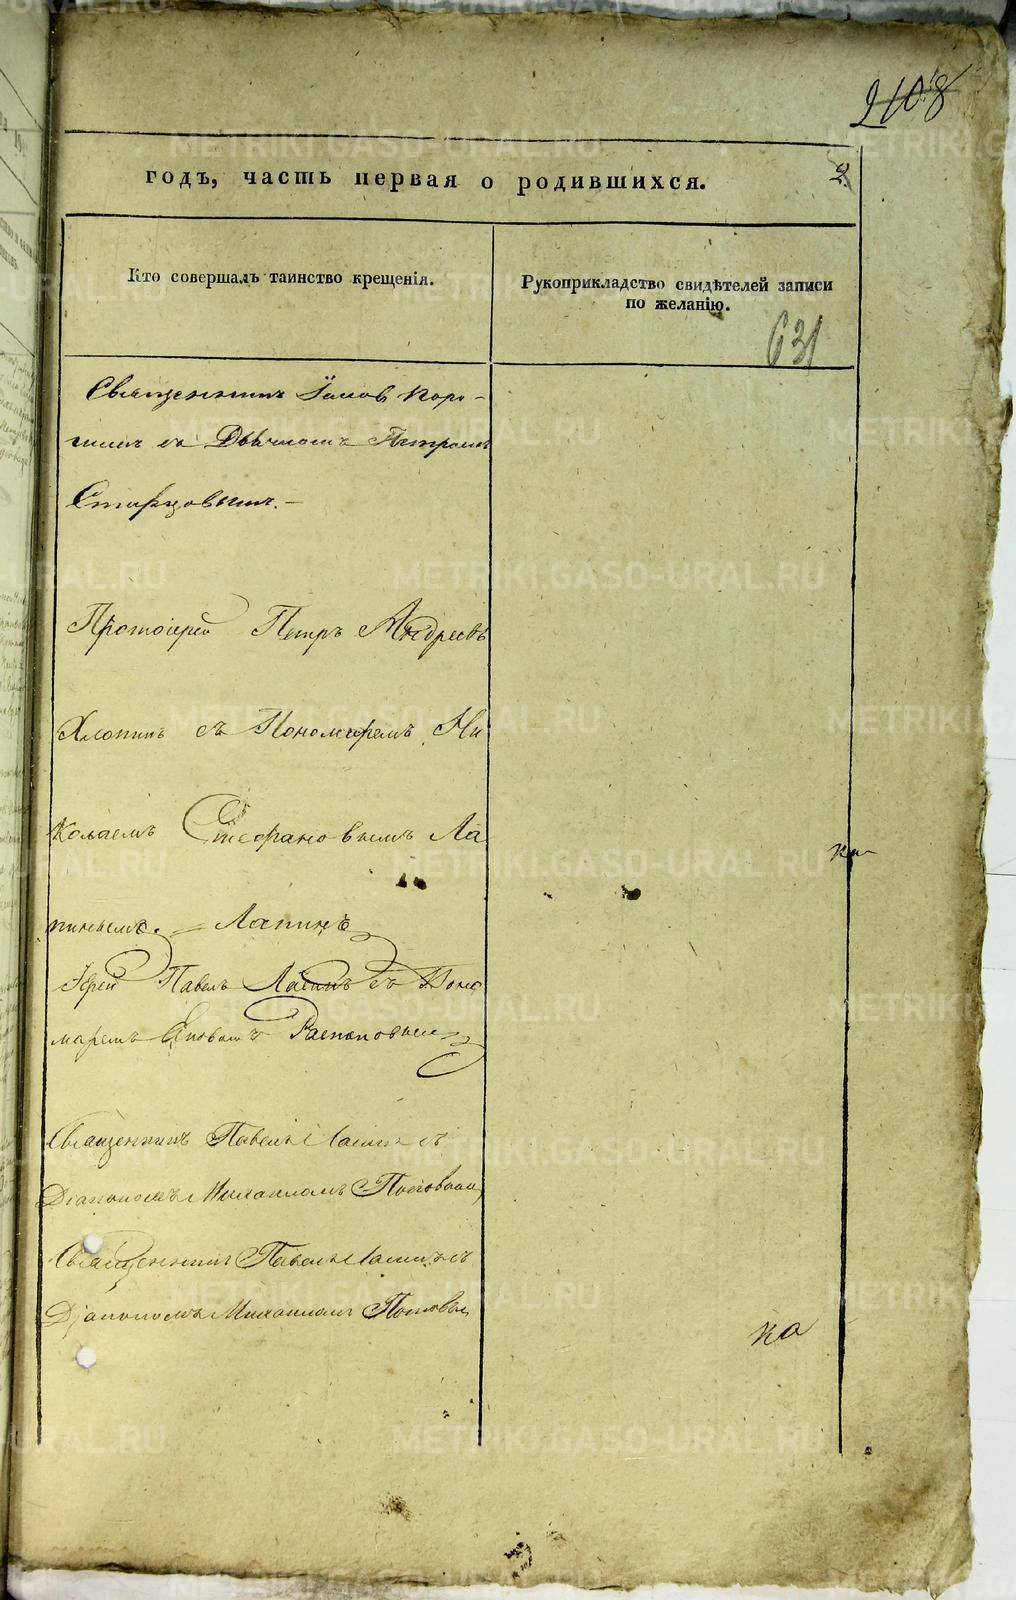 2108
годъ, часть первая о родившихся.
Кто совершалъ таинство крещенія.
Рукоприкладство свидѣтелей записи
по желанію.
631
Священникъ Іаковъ Коро-
съ Дьячкомъ Петромъ
Старцовымъ.-
Протоіерей Петръ Андреевъ
Хлопинъ съ Пономаремъ Ни
колаемъ Стефановымъ Ла
пинымъ. = Лапинъ
Іерей Павелъ съ Поно
маремъ Распоповымъ
Священникъ Павелъ съ
Діакономъ Михаиломъ Поповымъ
Священникъ Павелъ съ
Діакономъ Михаиломъ Поповым
ка
METRIKI.GASO-URAL.RU